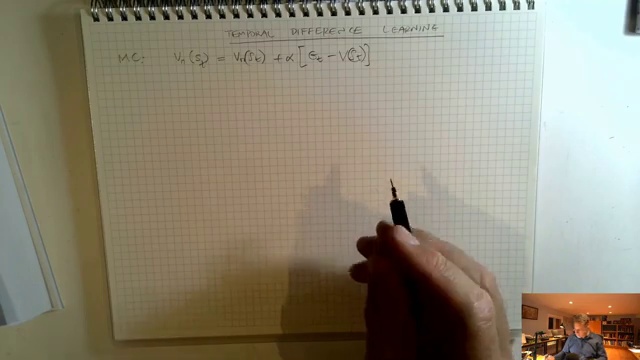 TEMPORAL DIFFERENCE LEARNING
MC: Vπ(St) = Vπ(St) + α [Gt - V(St)]